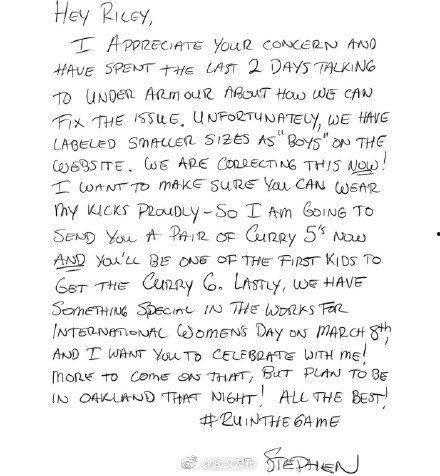 HEY RILEY,
I APPRECIATE YOUR CONCERN AND
HAVE SPENT THE LAST 2 DAYS TALKING
TO UNDER ARMOUR ABOUT HOW WE CAN
FIX THE ISSUE. UNFORTUNATELY, WE HAVE
LABELED SMALLER SIZES AS "BOYS" ON THE
WEBSITE. WE ARE CORRECTING THIS NOW!
I WANT TO MAKE SURE YOU CAN WEAR
MY KICKS PROUDLY - SO I AM GOING TO
SEND YOU A PAIR OF CURRY 5'S NOW
AND YOU'LL BE ONE OF THE FIRST KIDS TO
GET THE CURRY 6. LASTLY, WE HAVE
SOMETHING SPECIAL IN THE WORKS FOR
INTERNATIONAL WOMEN'S DAY ON MARCH 8th,
AND I WANT YOU TO CELEBRATE WITH ME!
MORE TO COME ON THAT, BUT PLAN TO BE
IN OAKLAND THAT NIGHT! ALL THE BEST!
#RUINTHEGAME
STEPHEN